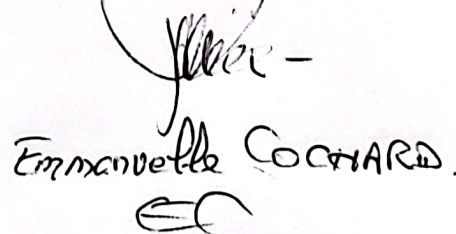 Emmanuelle COCHARD.
EC